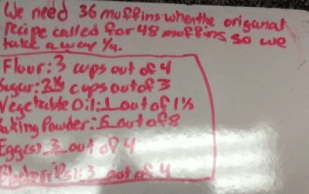 We need 36 muffins when the origanal
recipe called for 48 muffins so we
take away 1/4.
Flour: 3 cups out of 4
Sugar: 2 1/4 cups out of 3
Vegetable Oil: 1 out of 1 1/3
Baking Powder: 6 out of 8
Eggs: 3 out of 4
3 out of 4